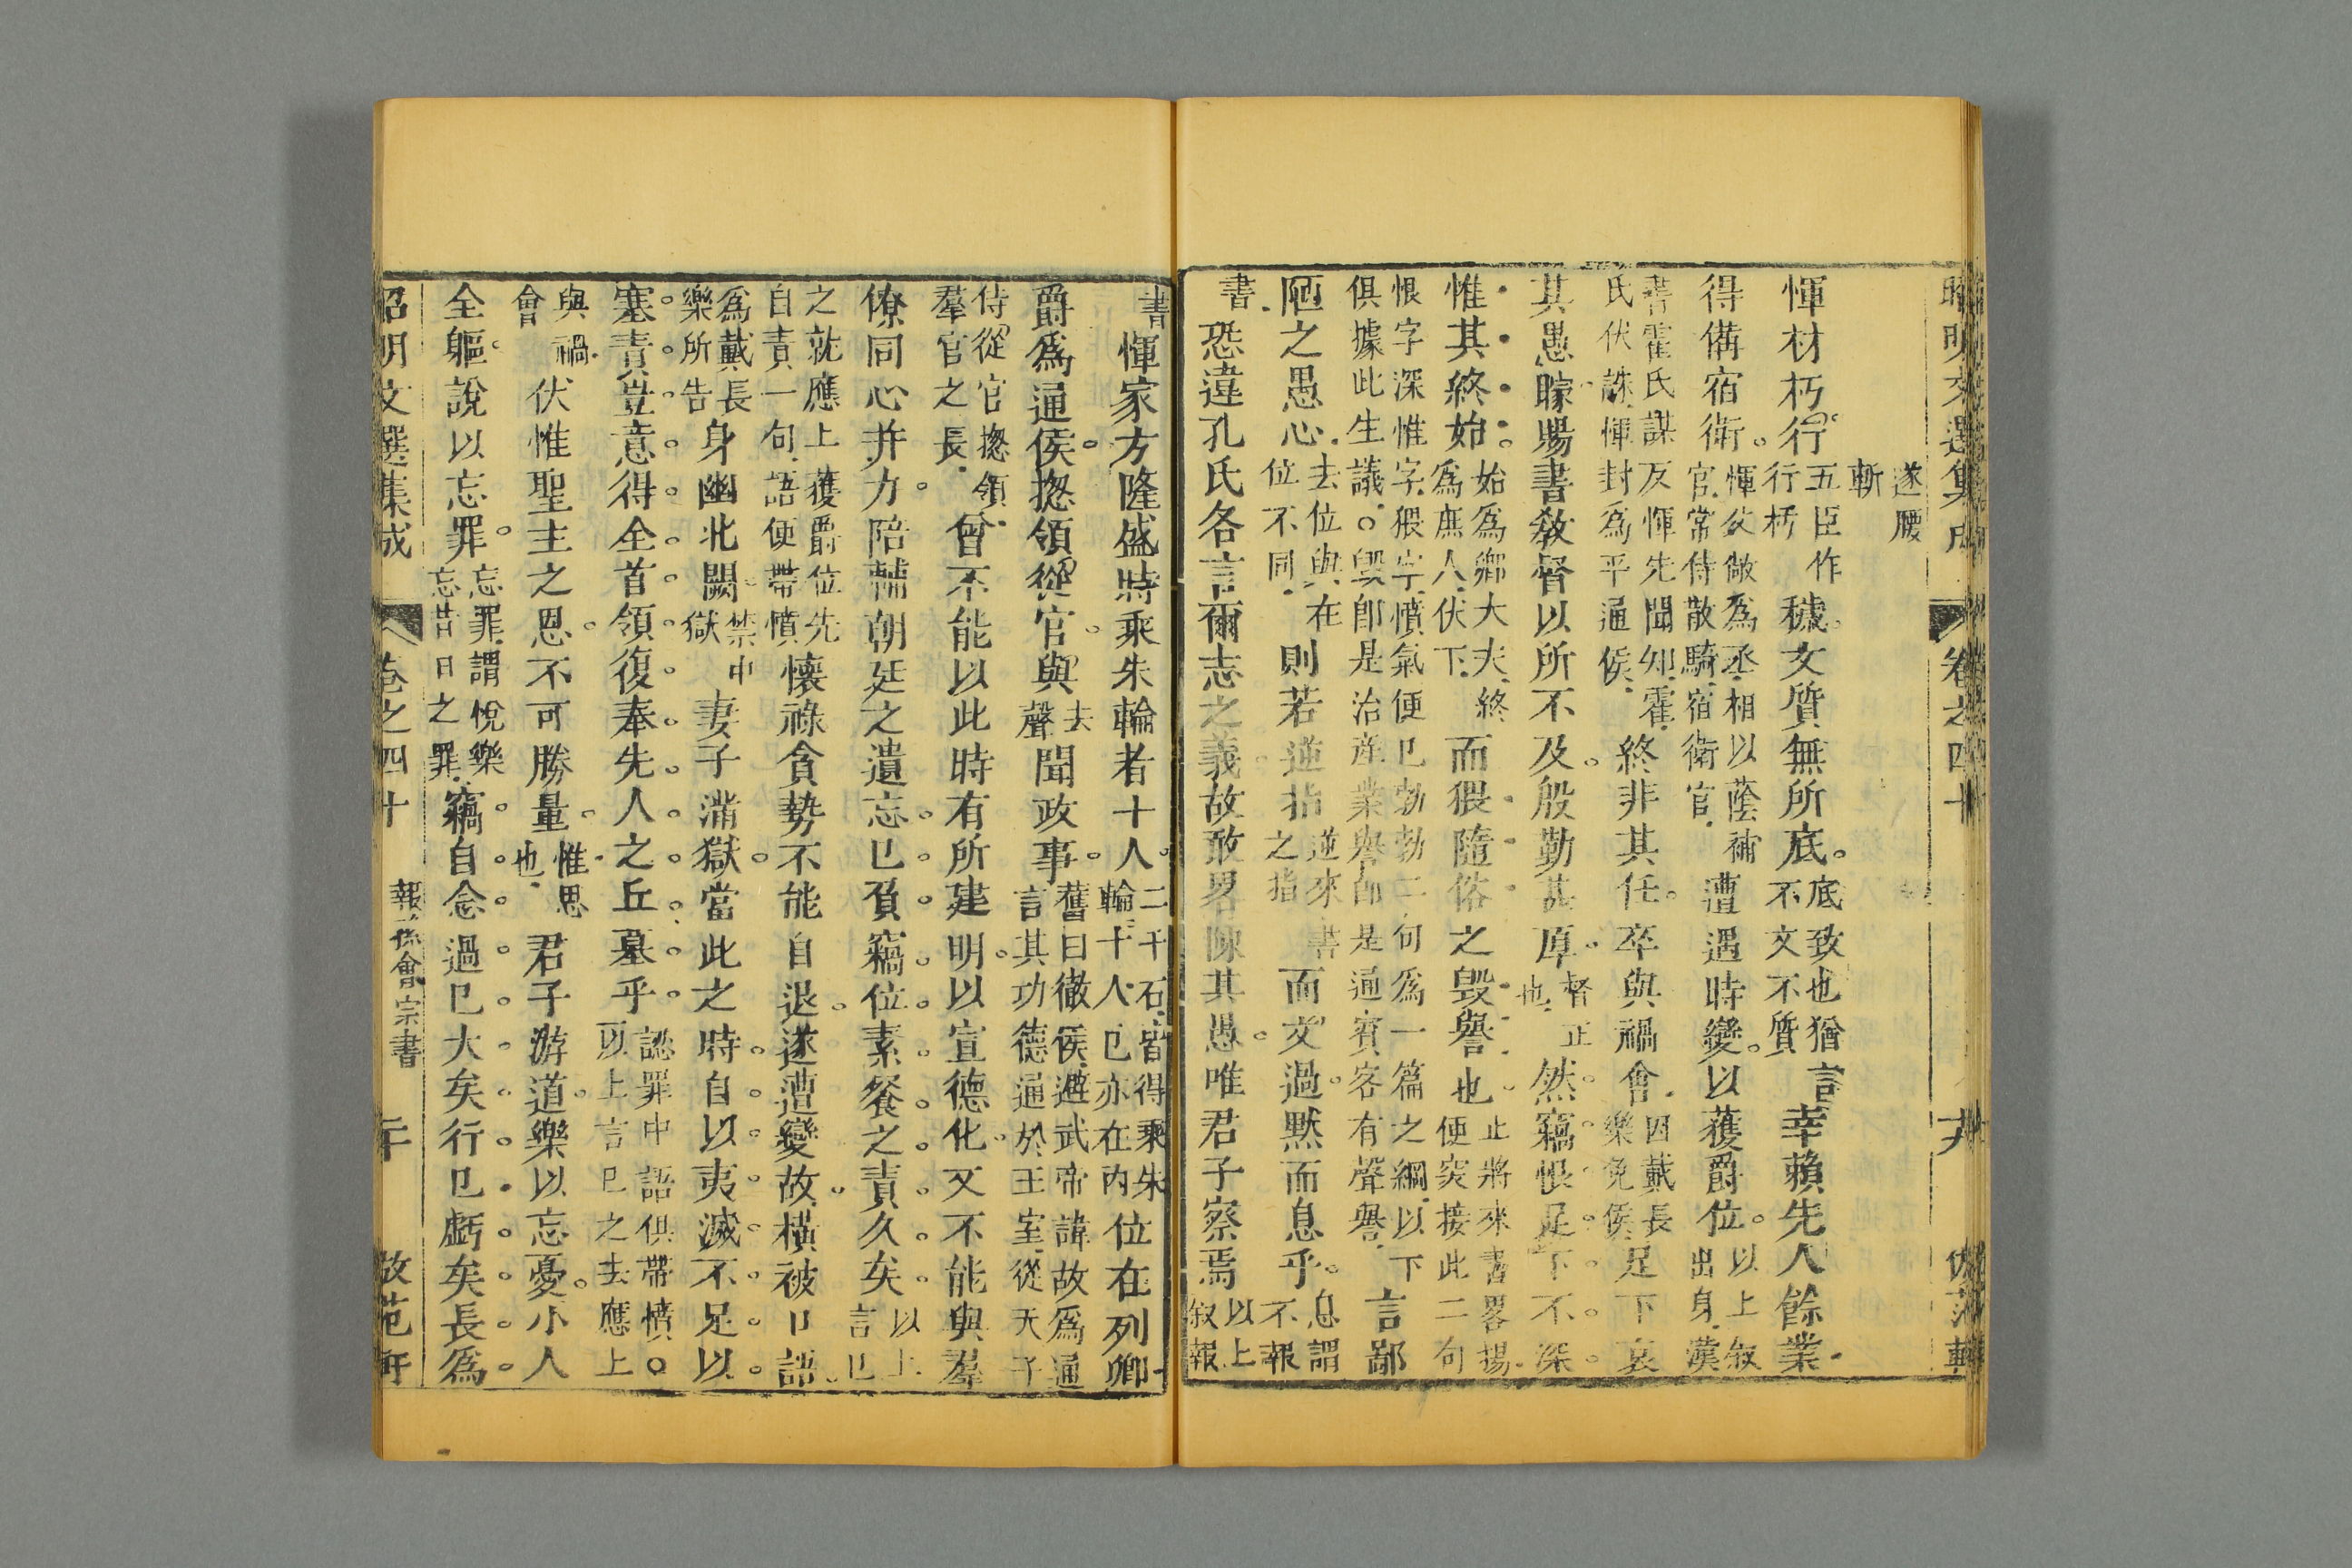 昭明文選集成 卷之四十 十九 倣范軒
遂腰斬
惲材朽行五臣作行朽穢文質無所底底致也猶言不文不質幸賴先人餘業
得備宿衛惲父敞爲丞相以蔭補官常侍散騎宿衛官遭遇時變以獲爵位以上叙出身漢
書霍氏謀反惲先聞知霍氏伏誅惲封爲平通侯終非其任卒與禍會因戴長樂免侯足下哀
其愚矇賜書敎督以所不及殷勤甚厚督正也然竊恨足下不深
惟其終始始爲卿大夫終爲庶人伏下而猥隨俗之毀譽也止將來書畧揚便突接此二句
恨字深惟字猥字憤氣便已勃勃二句爲一篇之綱以下俱據此生議○毀卽是治產業與譽卽是通賓客有聲譽言鄙
陋之愚心去位與在位不同則若逆指逆來書之指而文過默而息乎息謂不報
書恐違孔氏各言爾志之義故敢畧陳其愚唯君子察焉以上叙報
書惲家方隆盛時乘朱輪者十人二千石皆得乘朱輪十人已亦在内位在列卿
爵爲通侯摠領從官與去聲聞政事舊曰徹侯避武帝諱故爲通言其功德通於王室從天子
侍從官摠領羣官之長曾不能以此時有所建明以宣德化又不能與羣
僚同心并力陪輔朝廷之遺忘已負竊位素餐之責久矣以上言已
之就應上獲爵位先自責一句語便帶憤懷祿貪勢不能自退遂遭變故橫被口語
爲戴長樂所告身幽北闕禁中獄妻子滿獄當此之時自以夷滅不足以
塞責豈意得全首領復奉先人之丘墓乎認罪中語俱帶憤○以上言已之去應上
與禍會伏惟聖主之恩不可勝量惟思也君子游道樂以忘憂小人
全軀說以忘罪忘罪謂悅樂忘昔日之罪竊自念過已大矣行已虧矣長爲
昭明文選集成 卷之四十 報孫會宗書 二十 倣范軒